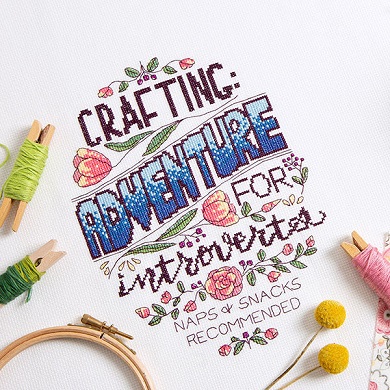 CRAFTING:
ADVENTURE
FOR
introverts
NAPS & SNACKS
RECOMMENDED